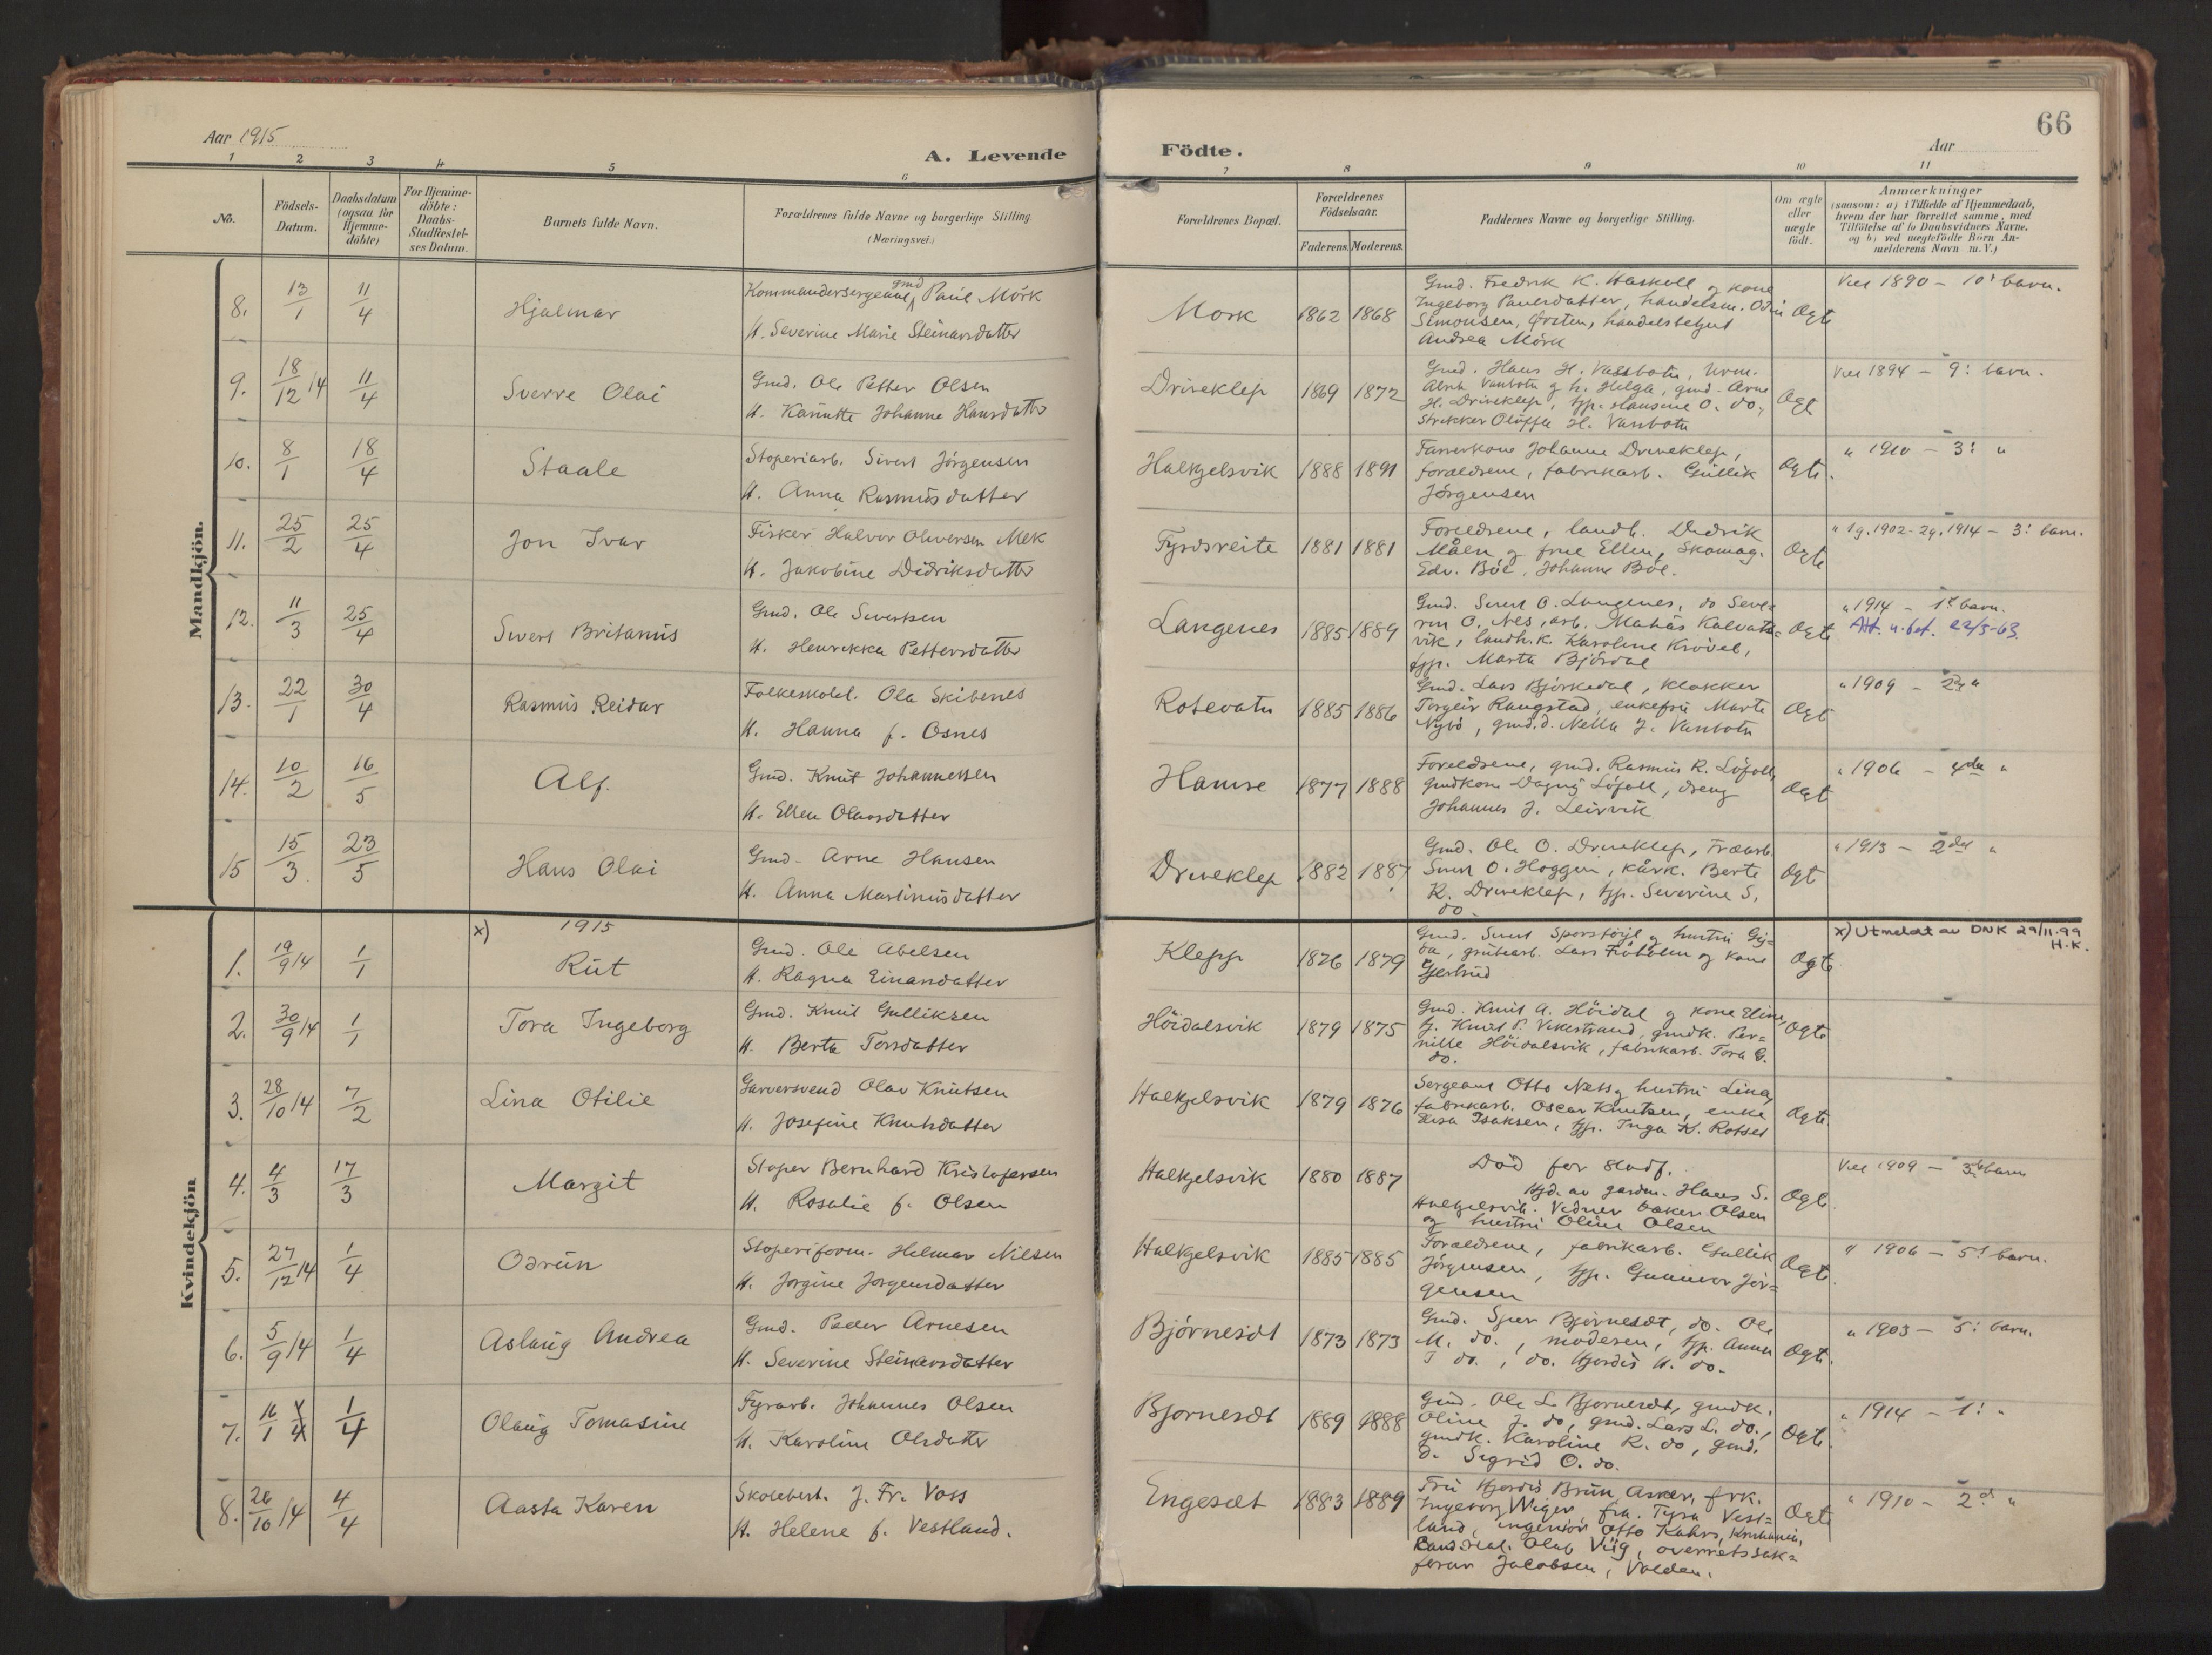 Aar 1915
A. Levende
Födte.
Aar
66
1 2 3 4 5 6 7 8 9 10 11
No.
Födsels-Datum.
Daabsdatum (ogsaa for Hjemme-döbte)
For Hjemme-döbte: Daabs-Stadfæstel-ses Datum.
Barnets fulde Navn.
Forældrenes fulde Navne og borgerlige Stilling. (Næringsvei.)
Forældrenes Bopæl.
Forældrenes Födselsaar.
Faderens. Moderens.
Faddernes Navne og borgerlige Stilling.
Om ægte eller uægte födt.
Anmærkninger
(saasom: a) i Tilfælde af Hjemmedaab, hvem der har forrettet samme, med Tilföielse af to Daabsvidners Navne, og b) ved uægtefödte Börn An-melderens Navn m. V.)
Mandkjön.
8. 13/1 11/4 Hjalmar
Kommandersergeant, gmd Paul Mörk
H. Severine Marie Steinarsdatter
Mork 1862 1868
Gmd. Fredrik K. Haskoll og kone
Ingeborg Paulsdatter, handelsm. Odin
Simonsen, Örsten, handelsbetjent
Andrea Mörk
Ægte
Viet 1890 - 10' barn.
9. 18/12 14 11/4 Sverre Olai
Gmd. Ole Petter Olsen
H. Karintte Johanne Hansdatter
Driveklep 1869 1872
Gmd. Hans H. Vassbotn, urm.
Vanbotn og h. Helga, gmd. Arne
H. Driveklep, tjp. Hansine O. do.,
Strikker H. Vanbotn
Ægt
Viet 1894 - 9: barn.
10. 8/1 18/4 Staale
Stoperiarb. Sivert Jörgensen
H. Anna Rasmusdatter
Halkjelsvik 1888 1891
Farverkone Johanne Driveklep,
forældrene, fabrikarb. Gullik
Jörgensen
Ægte.
" 1910 - 3: "
11. 25/2 25/4 Jon Ivar
Fisker Halvor Oluversen Mek
H. Jakobine Didriksdatter
Fyrdsreite 1881 1881
Forældrene, landh. Didrik
Måen og frue Ellen, Skomag.
Edv. Böe, Johanne Böe.
Ægte
" 1g. 1902 - 2g. 1914 - 3: barn.
12. 11/3 25/4 Sivert Britanus
Gmd. Ole Sivertsen
H. Henrikka Pettersdatter
Langenes 1885 1889
Gmd. Sivert O. Langenes, do Seve=
rin O. Nes, arb. Matias Kalvats=
vik, landh.k. Karoline Krövel,
tjp. Marta Björdal
Ægte
" 1914 - 1st barn.
Att. u.bet. 22/5-63.
13. 22/1 30/4 Rasmus Reidar
Folkeskolel. Ola Skibenes
H. Hanna f. Osnes
Rotevatn 1885 1886
Gmd. Lars Björkedal, klokker
Torgeir Raugstad, enkefru Marte
Nybö, gmd.d. Nella J. Vanbotn
Ægt
" 1909 - 2det "
14. 10/2 16/5 Alf.
Gmd. Knut Johannessen
H. Ellen Olavsdatter
Hamre 1877 1888
Forældrene, gmd. Rasmus R. Löfoll,
Gmdkone Dagny Löfoll, dreng
Johannes J. Leirvik
Ægt
" 1906 - 4de "
15 15/3 23/5 Hans Olai
Gmd. Arne Hansen
H. Anna Martinusdatter
Driveklep 1882 1887
Gmd. Ole O. Driveklep, Træarb.
Sivert O. Hoggen, kårk. Berte
K. Driveklep, tjp. Severine S.
do.
Ægt
" 1913 - 2det "
Kvindekjön
x) 1915
1. 19/9 14 1/1 Rut
Gmd. Ole Abelsen
H. Ragna Einarsdatter
Klepp 1876 1879
Gmd. Sivert Sporstöyl og hustru Gj=
da, grubearb. Lars Fröholm og kone
Gjertrud
Ægte
x) Utmeldt av DNK 29/11-99
H.K.
2. 30/9 14 1/1 Tora Ingeborg
Gmd. Knut Gulliksen
H. Berte Torsdatter
Höidalsvik 1879 1875
Gmd. Knut A. Höidal og kone Eline,
tj. Knut P. Vikestrand, gmdk. Per=
nille Höidalsvik, fabrikarb. Tora G.
do.
Ægte
3. 28/10 14 7/2 Lina Otilie
Garversvend Olav Knutsen
H. Josefine Knutsdatter
Halkjelsvik 1879 1876
Sergeant Otto Nets og hustru Lina,
fabrikarb. Oscar Knutsen, enke
Lisa Isaksen, tjp. Inga K. Rotset
Ægte.
4. 4/3 17/3 Margit
Stoper Bernhard Kristofersen
H. Rosalie f. Olsen
Halkjelsvik 1880 1887
Död för stadf.
Hjd. av gardm. Hans S.
Halkjelsvik. Vidner baker Olsen
og hustru Oline Olsen
Ægte.
Viet 1909 - 3de barn
5. 27/12 14 1/4 Odrun
Stoperiform. Helmar Nilsen
H. Jorgine Jorgensdatter
Halkjelsvik 1885 1885
Forældrene, fabrikarb. Gullik
Jörgensen, tjp. Gunnvor Jör=
gensen
Ægte.
" 1906 - 5t barn.
6. 5/9 14 1/4 Aslaug Andrea
Gmd. Peder Arnesen
H. Severine Steinarsdatter
Björnesdt 1873 1873
Gmd. Sjur Björnesdt, do. Ole
M. do., moderen, tjp. Anna
T do., do. Hjordis H. do.
Ægte.
" 1903 - 5: barn.
7. 16/1 1/4 Olaug Tomasine
Fyrarb. Johannes Olsen
H. Karoline Olsdatter
Bjornesdt 1889 1888
Gmd. Ole L. Bjornesdt, gmdk.
Oline J. do, gmd. Lars L. do.,
gmdk. Karoline R. do, gmd.
d. Sigrid O. do.
Ægte.
" 1914 - 1: "
8. 26/10 14 4/4 Aasta Karen
Skolebest. J. Fr. Voss
H. Helene f. Vestland.
Engesdt 1883 1889
Fru Hjordis Brun Arker, frk.
Ingeborg Wiger, frk. Tyra Vest=
land, ingeniör Otto Kahrs, Kristiania,
Cand. real. Olaf Viig, overretssak=
förer Jacobsen, Volden.
Ægte
" 1910 - 2d "